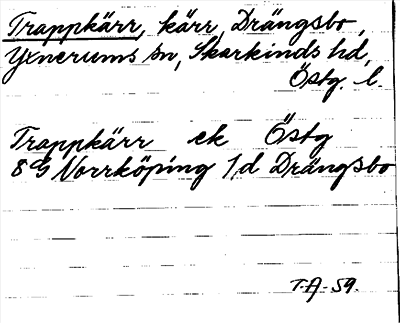 Trappkärr, kärr, Drängsbo,
Yxnerums sn, Skärkinds hd,
Östg. l.
Trappkärr ek Östg
8 G Norrköping 1/d Drängsbo
T.A-59.